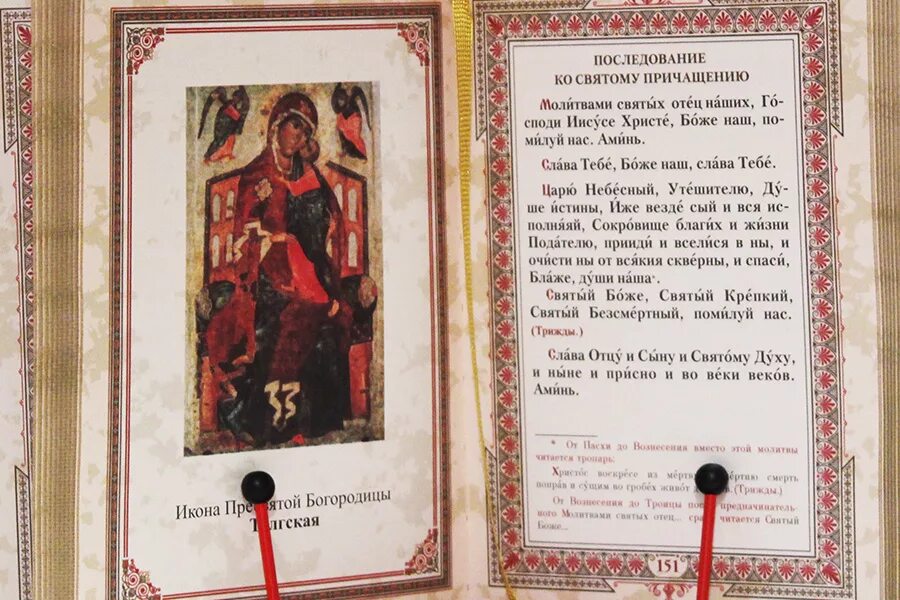 Икона Пресвятой Богородицы
Толгская
ПОСЛЕДОВАНИЕ
КО СВЯТОМУ ПРИЧАЩЕНИЮ
Моли́твами святы́х оте́ц на́ших, Го́-
споди Иису́се Христе́, Бо́же наш, по-
ми́луй нас. Ами́нь.
Сла́ва Тебе́, Бо́же наш, сла́ва Тебе́.
Царю́ Небе́сный, Уте́шителю, Ду́-
ше и́стины, И́же везде́ сый и вся ис-
полня́яй, Сокро́вище благи́х и жи́зни
Пода́телю, прииди́ и всели́ся в ны, и
очи́сти ны от вся́кия скве́рны, и спаси́,
Бла́же, ду́ши на́ша*.
Святы́й Бо́же, Святы́й Кре́пкий,
Святы́й Безсме́ртный, поми́луй нас.
(Трижды.)
Сла́ва Отцу́ и Сы́ну и Свято́му Ду́ху,
и ны́не и при́сно и во ве́ки веко́в.
Ами́нь.
* От Пасхи до Вознесения вместо этой молитвы
читается тропарь:
Христо́с воскре́се из ме́ртвых, сме́ртию смерть
попра́в и су́щим во гробе́х живо́т (Трижды.)
От Вознесения до Троицы после предначинатель-
ного Молитвами святых отец... сразу читается Святый
Боже...
151